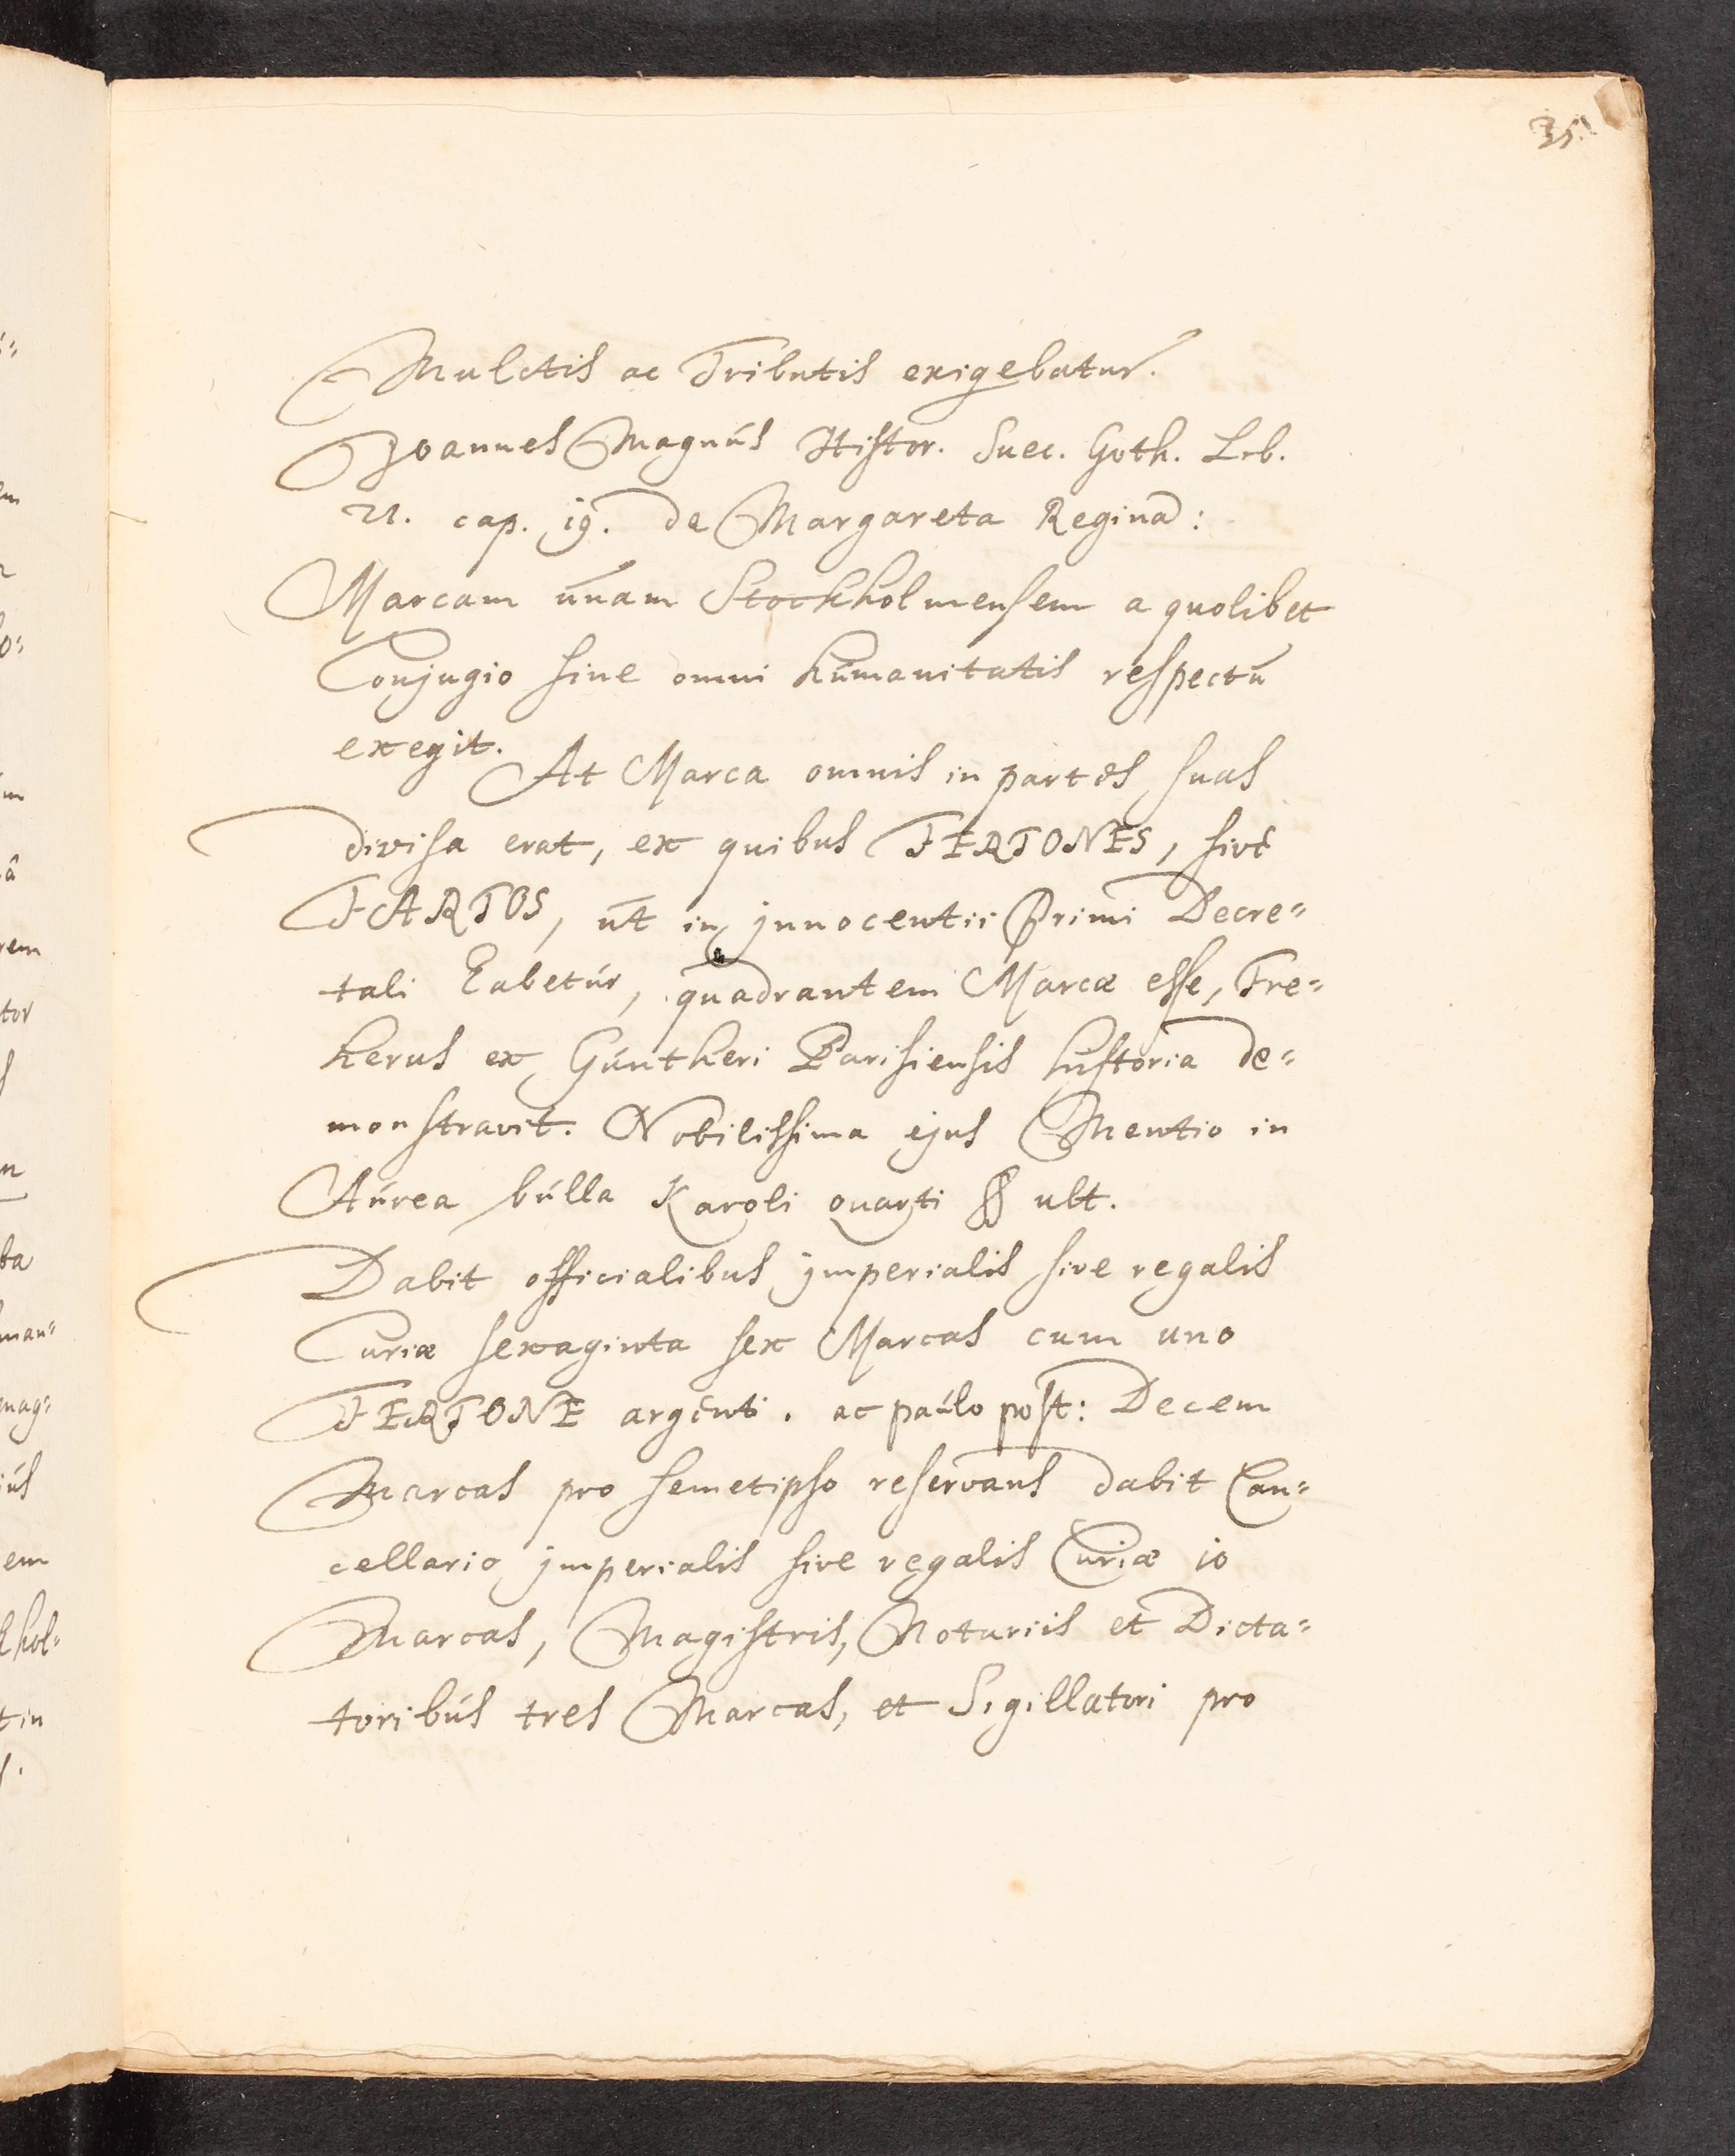 35.
Mulctis ac Tributis exigebatur.
Joannes Magnús Histor. Suec. Goth. Lib.
21. cap. 19. de Margareta Regina:
Marcam unam Stockholmensem a quolibet
Conjugio sine omni humanitatis respectu
exegit.
At Marca omnis in partes suas
divisa erat, ex quibus FERTONES, sive
FARTOS, ut in jnnocentii Primi Decre=
tali habetúr, quadrantem Marcæ esse, Fre=
herus ex Gúntheri Parisiensis historia de=
monstravit. Nobilissima ejus Mentio in
Aúrea búlla Karoli quarti § ult.
Dabit officialibus jmperialis sive regalis
Curiæ sexaginta sex Marcas cum uno
FERTONE argenti. ac paúlo post: Decem
Marcas pro semetipso reservans dabit Can=
cellario jmperialis sive regalis Curiæ 10
Marcas, Magistris, Notariis et Dicta=
toribús tres Marcas, et Sigillatori pro